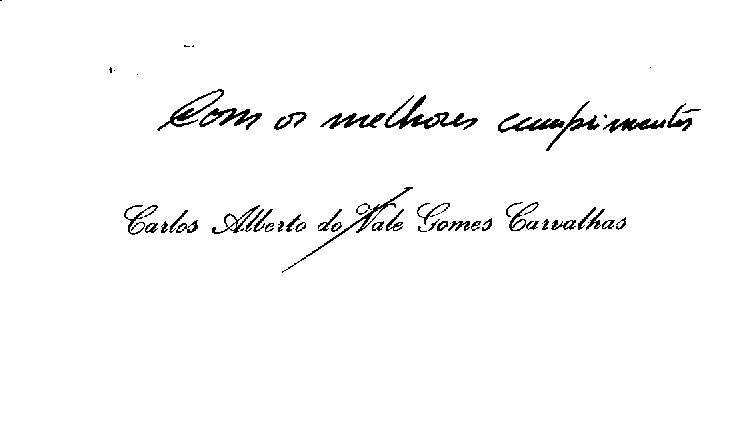 Com os melhores cumprimentos
Carlos Alberto do Vale Gomes Carvalhas